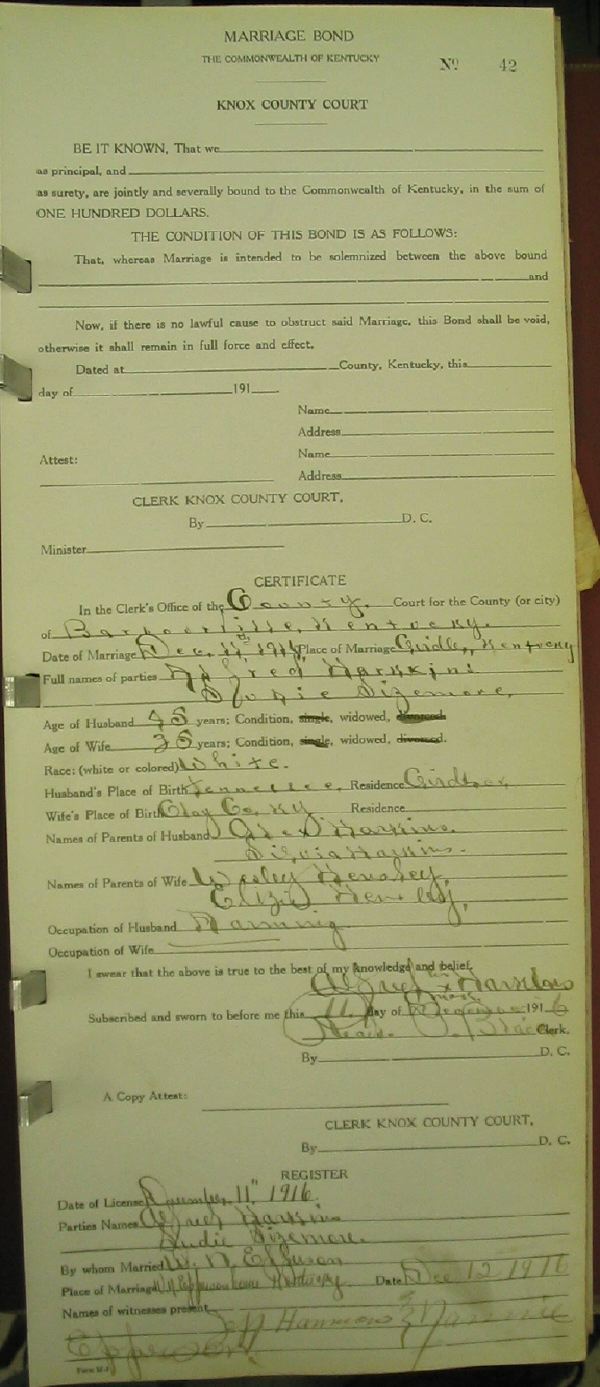 MARRIAGE BOND
THE COMMONWEALTH OF KENTUCKY
No 42
KNOX COUNTY COURT
BE IT KNOWN, That we
as principal, and
as surety, are jointly and severally bound to the Commonwealth of Kentucky, in the sum of
ONE HUNDRED DOLLARS.
THE CONDITION OF THIS BOND IS AS FOLLOWS:
That, whereas Marriage is intended to be solemnized between the above bound
and
Now, if there is no lawful cause to obstruct said Marriage, this Bond shall be void,
otherwise it shall remain in full force and effect.
Dated at County, Kentucky, this
day of 191
Name
Address
Attest: Name
Address
CLERK KNOX COUNTY COURT.
By D. C.
Minister
CERTIFICATE
In the Clerk's Office of the County. Court for the County (or city)
of Barbourville, Kentucky.
Date of Marriage Dec, 1916 Place of Marriage Girdler, Kentucky
Full names of parties Alfred Harkins
Sizemore,
Age of Husband 45 years; Condition, single, widowed, divorced.
Age of Wife 35 years; Condition, single, widowed, divorced.
Race: (white or colored) White.
Husband's Place of Birth Tennessee, Residence Girdler,
Wife's Place of Birth Clay Co, Ky Residence
Names of Parents of Husband Harkins.
Silvia Harkins.
Names of Parents of Wife Wesley Hensley,
Hensley,
Occupation of Husband Farming
Occupation of Wife
I swear that the above is true to the best of my knowledge and belief.
Alfred x Harkins
mark
Subscribed and sworn to before me this 11 day of December 1916
Read P. Black Clerk.
By D. C.
A Copy Attest:
CLERK KNOX COUNTY COURT,
By D. C.
REGISTER
Date of License December 11" 1916.
Parties Names Alfred Harkins
Sizemore.
By whom Married W. N. Epperson
Place of Marriage W N Epperson Kentucky Date Dec 12 1916
Names of witnesses present Hammons & Nannie
Epperson.